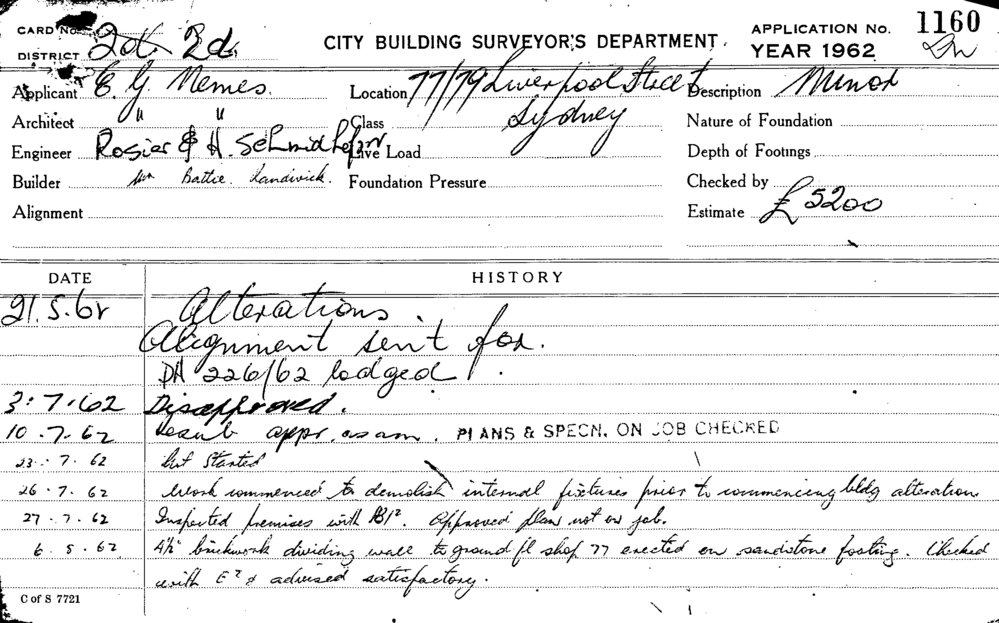 CARD No.
DISTRICT 2d. 2d.
CITY BUILDING SURVEYOR'S DEPARTMENT.
APPLICATION No. 1160
YEAR 1962
Applicant E. G. Nemes.
Location 77/79 Liverpool Street
Description Minor
Architect " "
Class Sydney
Nature of Foundation
Engineer Rosier & H. Schmidhofer
Live Load
Depth of Footings
Builder Mr Battie. Randwick.
Foundation Pressure
Checked by
Alignment
Estimate £5200
DATE
HISTORY
21.5.62 Alterations.
Alignment sent for.
DA 226/62 lodged.
3.7.62 Disapproved.
10.7.62 Resub appr. as am. PLANS & SPECN. ON JOB CHECKED
23.7.62 Not Started
26.7.62 Work commenced to demolish internal fixtures prior to commencing bldg alteration
27.7.62 Inspected premises with Approved plan not on job.
6.8.62 4½" brickwork dividing wall to ground fl shop 77 erected on sandstone footing. Checked
with & advised satisfactory.
C of S 7721